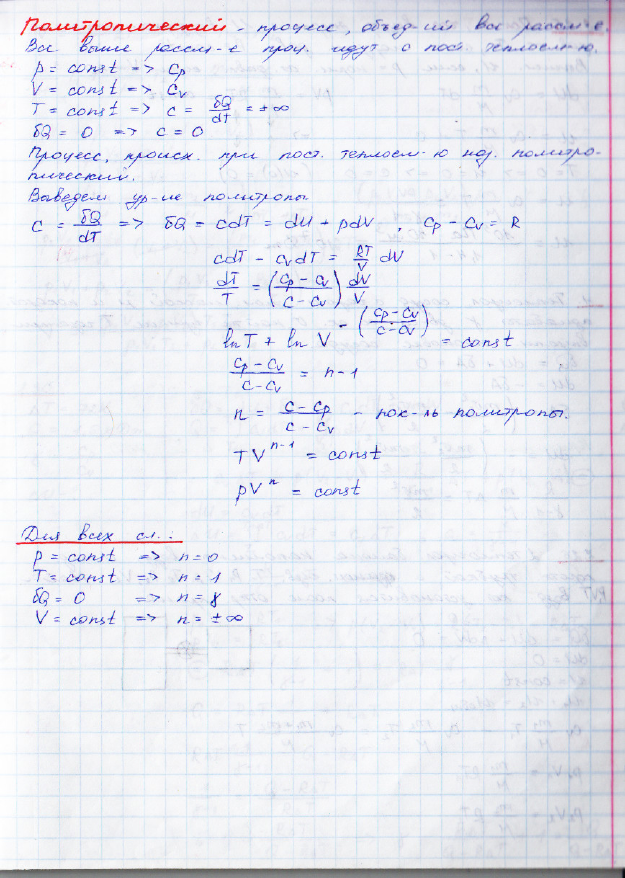 Политропический - процесс, объед-ий все рассм-е.
Все выше рассм-е проц. идут с пост. теплоем-ю.
p = const => Cp
V = const => Cv
T = const => c = δQ/dT = ±∞
δQ = 0 => c = 0
Процесс, происх. при пост. теплоем-ю наз. политро-
пический.
Выведем ур-ие политропы
c = δQ/dT => δQ = cdT = dU + pdV , Cp - Cv = R
cdT - CvdT = RT/V dV
dT/T = ((Cp - Cv)/(c - Cv)) dV/V
ln T + ln V^(-((Cp - Cv)/(c - Cv))) = const
(Cp - Cv)/(c - Cv) = n - 1
n = (c - Cp)/(c - Cv) - пок-ль политропы.
TV^(n-1) = const
pV^n = const
Для всех сл.:
p = const => n = 0
T = const => n = 1
δQ = 0 => n = γ
V = const => n = ±∞